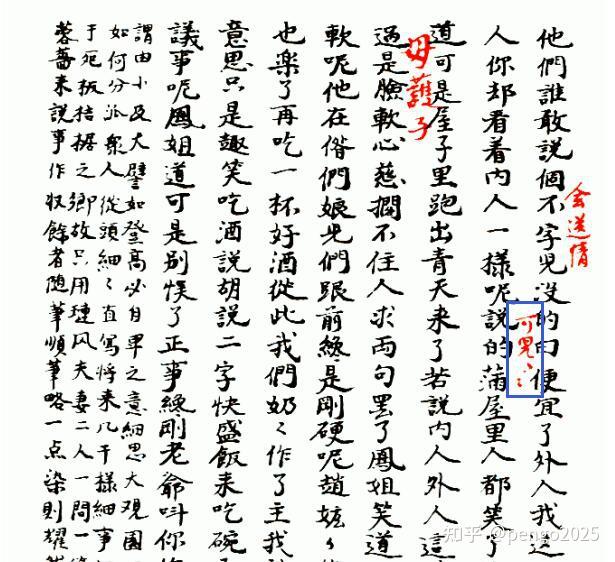 他們誰敢說個不字兒没的白便宜了外人我這
會送情
人你却看着内人一樣呢說的滿屋里人都笑了
可兒〻〻
道可是屋子里跑出青天来了若說内人外人這
護子
過是臉軟心慈擱不住人求兩句罷了鳳姐笑道
軟呢他在偺們娘兒們跟前纔是剛硬呢趙嬷〻
也樂了再吃一杯好酒從此我們奶〻作了主我
意思只是趣笑吃酒說胡說二字快盛飯来吃碗
議事呢鳳姐道可是别悞了正事纔剛老爺呌你
謂由小及大譬如登高必自卑之意細思大觀園
如何分派衆人從頭細〻直寫将来几千様細事
于死板拮据之鄉故只用璉鳳夫妻二人一問一
蓉薔来說事作収餘者随筆順筆略一点染則耀
知乎 @pengo2025